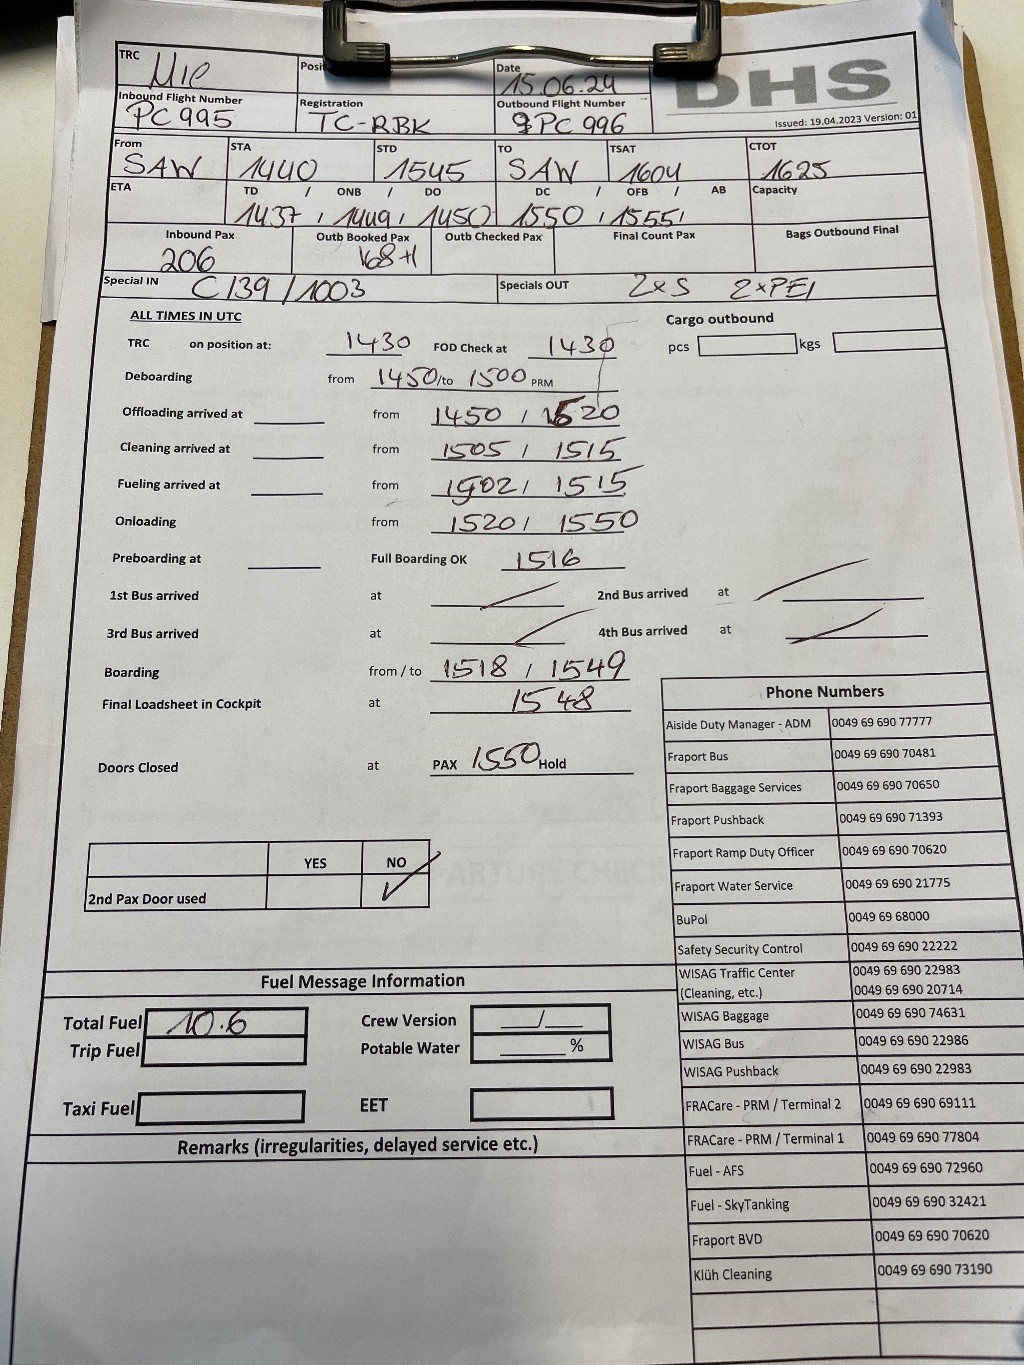 TRC Mie Posi Date 15.06.24 DHS
Inbound Flight Number PC 995 Registration TC-RBK Outbound Flight Number PC 996 Issued: 19.04.2023 Version: 01
From SAW STA 1440 STD 1545 TO SAW TSAT 1604 CTOT 1625
ETA TD / ONB / DO DC / OFB / AB Capacity
1437 / 1449 / 1450 1550 / 1555 /
Inbound Pax 206 Outb Booked Pax 168+1 Outb Checked Pax Final Count Pax Bags Outbound Final
Special IN C/39/1003 Specials OUT 2xS 2xPE1
ALL TIMES IN UTC Cargo outbound
TRC on position at: 1430 FOD Check at 1430 pcs kgs
Deboarding from 1450/to 1500 PRM
Offloading arrived at from 1450 / 1520
Cleaning arrived at from 1505 / 1515
Fueling arrived at from 1502 / 1515
Onloading from 1520 / 1550
Preboarding at Full Boarding OK 1516
1st Bus arrived at 2nd Bus arrived at
3rd Bus arrived at 4th Bus arrived at
Boarding from / to 1518 / 1549
Final Loadsheet in Cockpit at 1548
Doors Closed at PAX 1550 Hold
YES NO
2nd Pax Door used ✓
Phone Numbers
Aiside Duty Manager - ADM 0049 69 690 77777
Fraport Bus 0049 69 690 70481
Fraport Baggage Services 0049 69 690 70650
Fraport Pushback 0049 69 690 71393
Fraport Ramp Duty Officer 0049 69 690 70620
Fraport Water Service 0049 69 690 21775
BuPol 0049 69 68000
Safety Security Control 0049 69 690 22222
WISAG Traffic Center 0049 69 690 22983
(Cleaning, etc.) 0049 69 690 20714
WISAG Baggage 0049 69 690 74631
WISAG Bus 0049 69 690 22986
WISAG Pushback 0049 69 690 22983
FRACare - PRM / Terminal 2 0049 69 690 69111
FRACare - PRM / Terminal 1 0049 69 690 77804
Fuel - AFS 0049 69 690 72960
Fuel - SkyTanking 0049 69 690 32421
Fraport BVD 0049 69 690 70620
Klüh Cleaning 0049 69 690 73190
Fuel Message Information
Total Fuel 10.6 Crew Version /
Trip Fuel Potable Water %
Taxi Fuel EET
Remarks (irregularities, delayed service etc.)